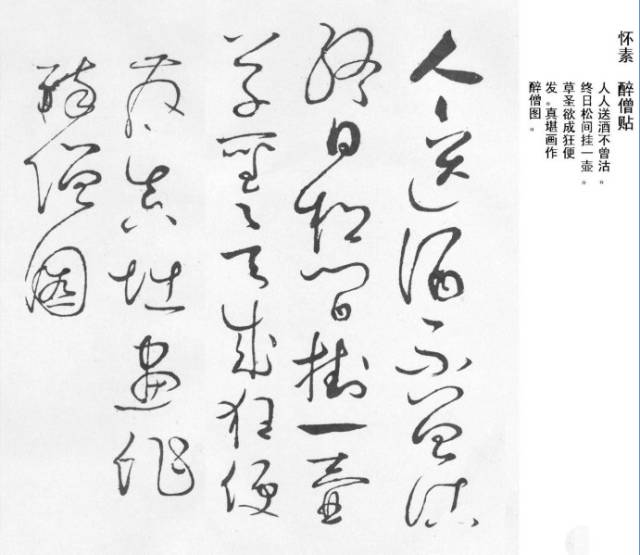 怀素 醉僧贴
人人送酒不曾沽。
终日松间挂一壶。
草圣欲成狂便
发。真堪画作
醉僧图。
人々送酒不曾沽
終日松間掛一壺
草聖欲成狂便
發真堪畫作
醉僧圖